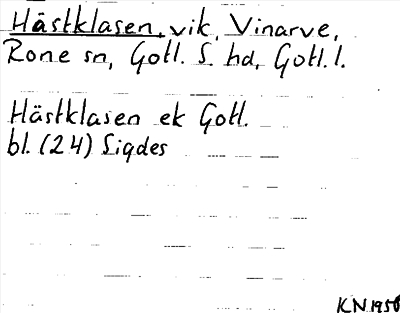 Hästklasen, vik, Vinarve,
Rone sn, Gotl. S. hd, Gotl. l.
Hästklasen ek Gotl.
bl. (24) Sigdes
KN 1956